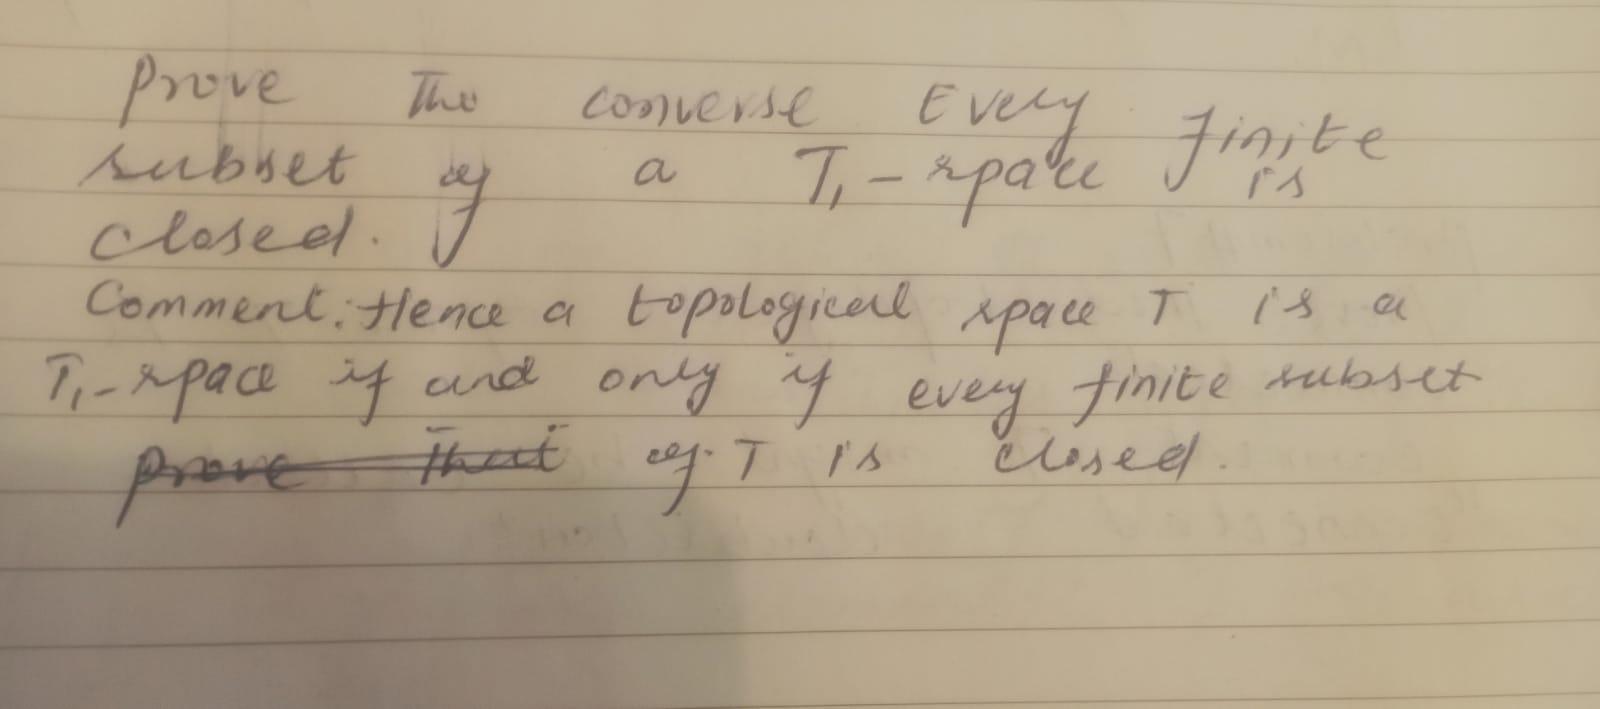 Prove The converse Every finite
subset of a T₁-space is
closed.
Comment: Hence a topological space T is a
T₁-space if and only if every finite subset
prove that of T is closed.